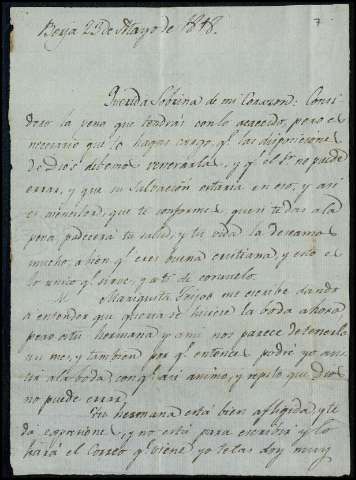 Berja 23 de Mayo de 1818.
7
Querida Sobrina de mi Corazon: Consi
dero la pena que tendrás con lo acaecido, pero es
necesario que te hagas cargo, q.e las disposiciones
de Dios debemos venerarlas, y q.e el S.r no puede
errar, y que su salvación estaria en eso; y asi
es menester, que te conformes, pues si te das a la
pena padecerá tu salud, y tu vida la deseamos
mucho, a bien q.e eres buena cristiana, y esto es
lo unico q.e sirve, y a ti de consuelo.
Mariquita Trijos me escribe dando
a entender que queria se hiciera la boda ahora
pero a tu hermana y a mi nos parece detenerlo
un mes, y tambien por q.e entonces podré yo asis
tir a la boda, con q.e asi animo, y repito que Dios
no puede errar.
Tu hermana está bien afligida y te
dá espresiones, y no está para escribir y lo
hará el Correo q.e viene yo te las doy muy